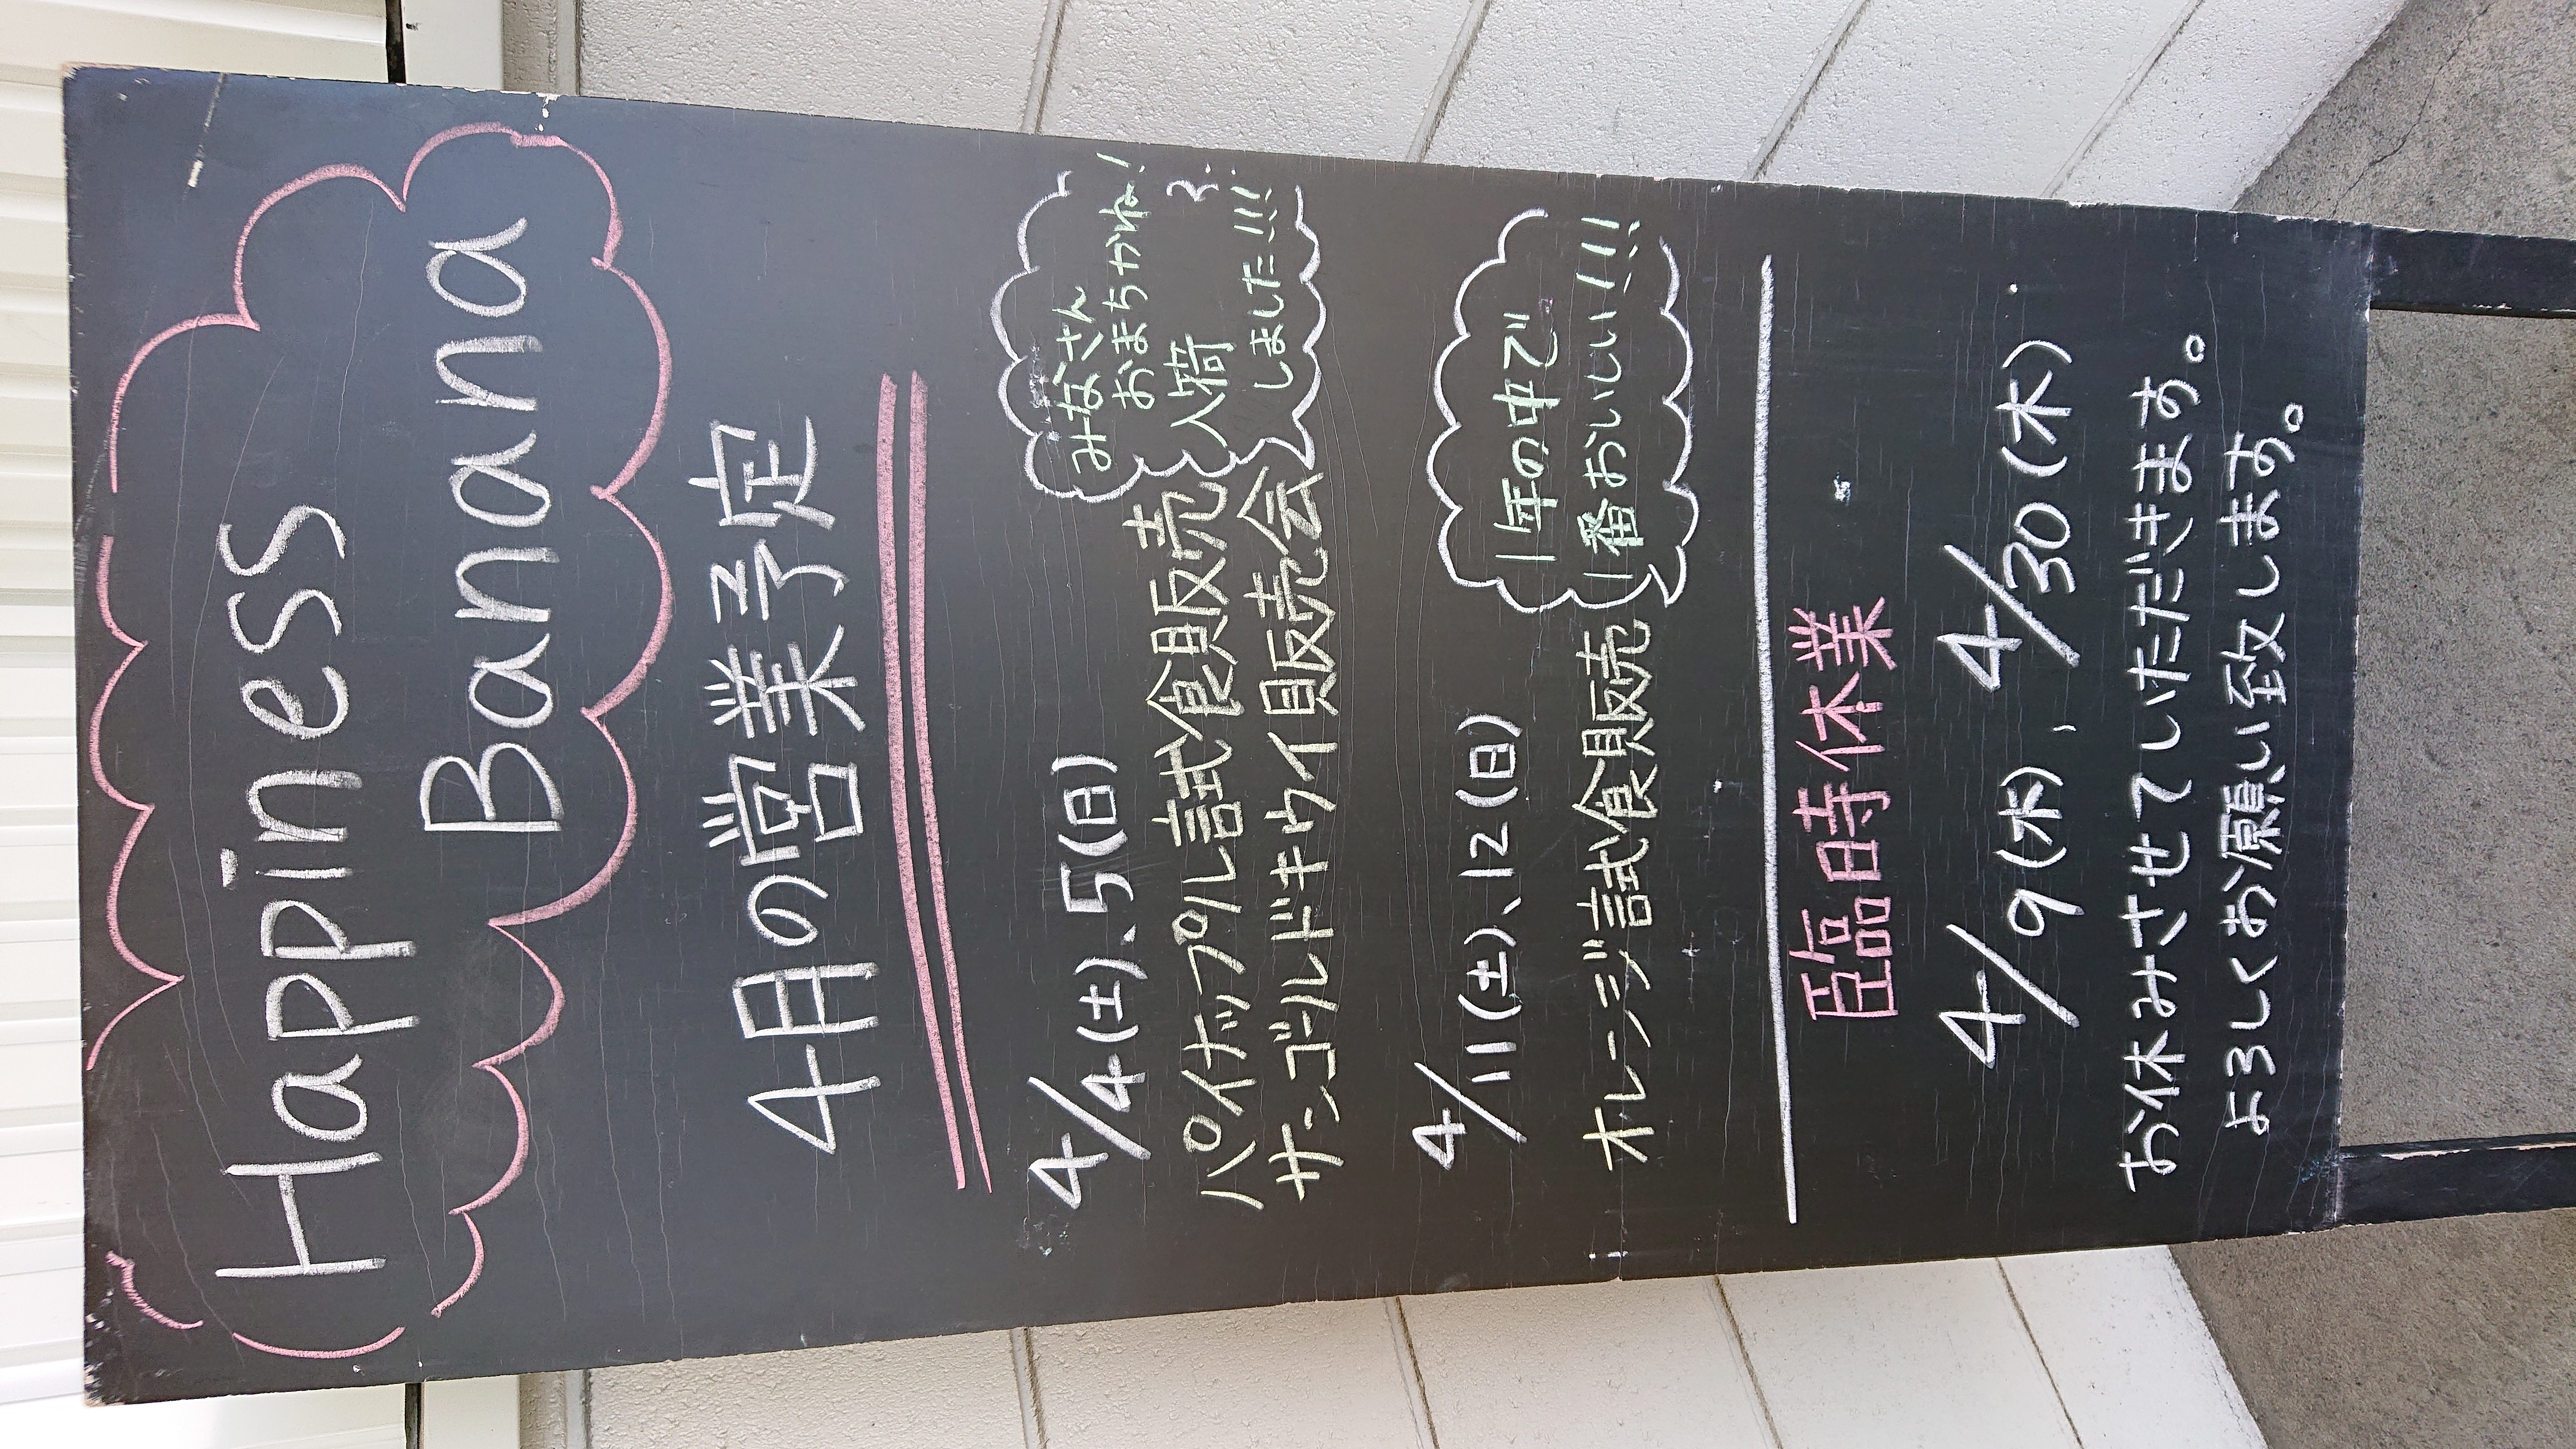 Happiness
Banana
4月の営業予定
4/4(土)、5(日)
みなさん
おまちかね!
入荷
しました!!!
パイナップル試食販売
サンゴールドキウイ販売会
4/11(土)、12(日)
1年の中で
1番おいしい!!!
オレンジ試食販売
臨時休業
4/9(木)、4/30(木)
お休みさせていただきます。
よろしくお願い致します。